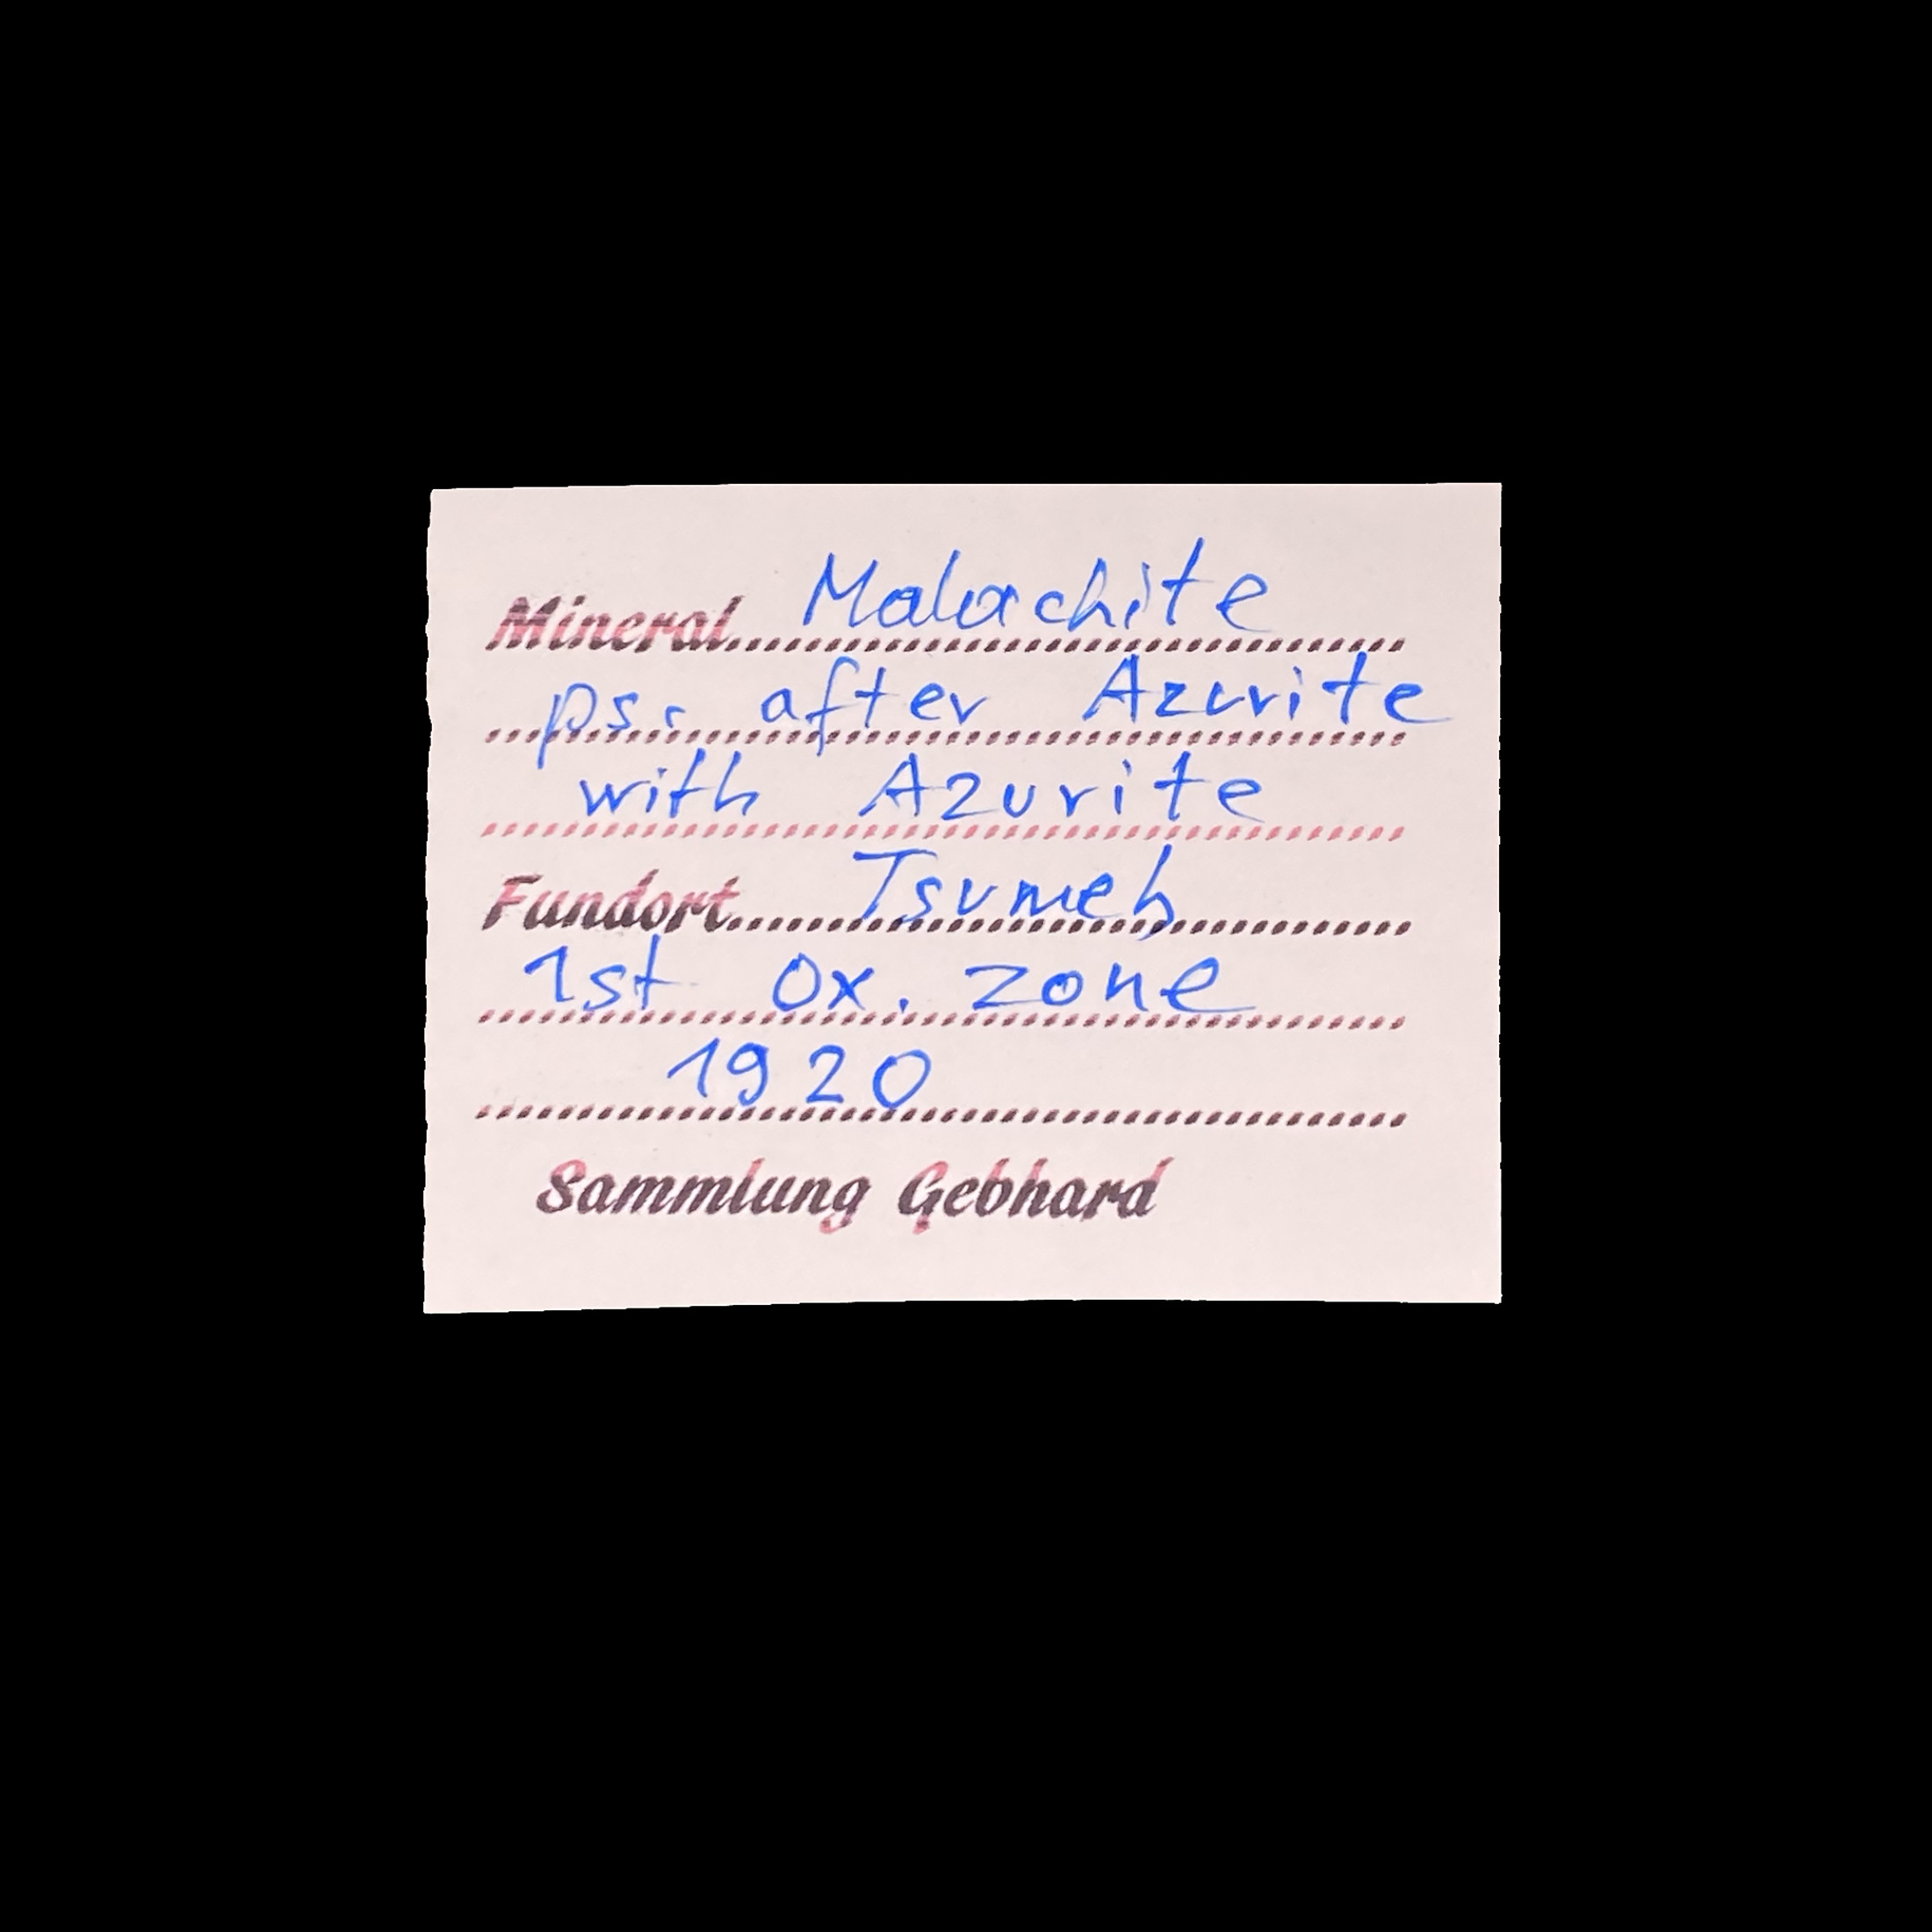 Mineral Malachite
ps. after Azurite
with Azurite
Fundort Tsumeb
1st Ox. zone
1920
Sammlung Gebhard